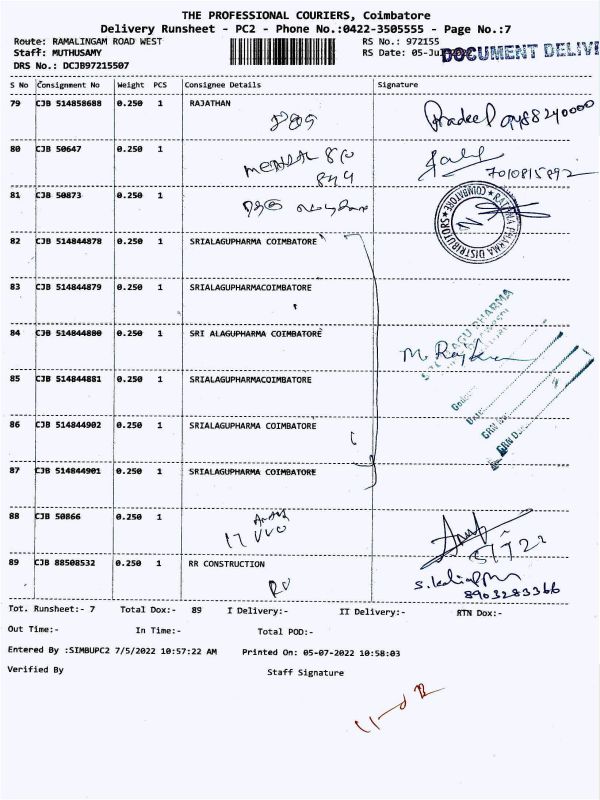 THE PROFESSIONAL COURIERS, Coimbatore
Delivery Runsheet - PC2 - Phone No.:0422-3505555 - Page No.:7
Route: RAMALINGAM ROAD WEST
RS No.: 972155
Staff: MUTHUSAMY
RS Date: 05-Jul
DOCUMENT DELIV
DRS No.: DCJB97215507
S No Consignment No Weight PCS Consignee Details Signature
79 CJB 514858688 0.250 1 RAJATHAN
Pradeep
80 CJB 50647 0.250 1
7010815892
81 CJB 50873 0.250 1
RATHNA PHARMA DISTRIBUTORS COIMBATORE
82 CJB 514844878 0.250 1 SRIALAGUPHARMA COIMBATORE
83 CJB 514844879 0.250 1 SRIALAGUPHARMACOIMBATORE
84 CJB 514844880 0.250 1 SRI ALAGUPHARMA COIMBATORE
85 CJB 514844881 0.250 1 SRIALAGUPHARMACOIMBATORE
86 CJB 514844902 0.250 1 SRIALAGUPHARMA COIMBATORE
87 CJB 514844901 0.250 1 SRIALAGUPHARMA COIMBATORE
88 CJB 50866 0.250 1
89 CJB 88508532 0.250 1 RR CONSTRUCTION
8903283366
Tot. Runsheet:- 7 Total Dox:- 89 I Delivery:- II Delivery:- RTN Dox:-
Out Time:- In Time:- Total POD:-
Entered By :SIMBUPC2 7/5/2022 10:57:22 AM Printed On: 05-07-2022 10:58:03
Verified By Staff Signature